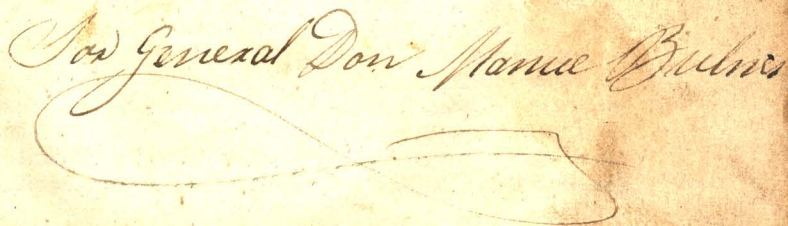 Sor General Don Manue Bulnes